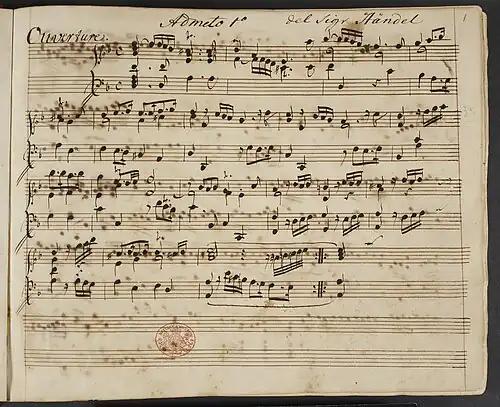 Admeto 1º del Sigr Händel 1
Ouverture.